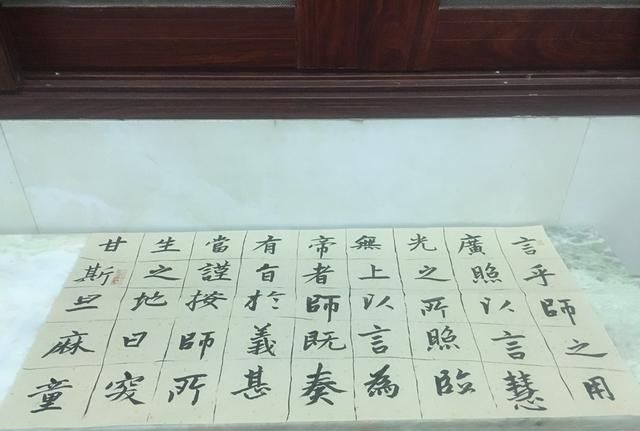 言乎師之用
廣照以言慧
光之所照臨
無上以言為
帝者師既奏
有旨於義甚
當謹按師所
生之地曰突
甘斯旦麻童